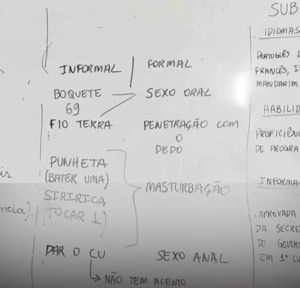 INFORMAL
FORMAL
BOQUETE
SEXO ORAL
69
FIO TERRA
PENETRAÇÃO COM
O
DEDO
PUNHETA
(BATER UMA)
SIRIRICA
(TOCAR 1)
MASTURBAÇÃO
DAR O CU
SEXO ANAL
NÃO TEM ACENTO
SUB
IDIOMAS
PORTUGUÊS
FRANCÊS, I
MANDARIM
HABILID
PROFICIÊN
DE PROGRA
INFORMA
APROVADA
DA SECRE
DO GOVER
EM 1º LU
ência).